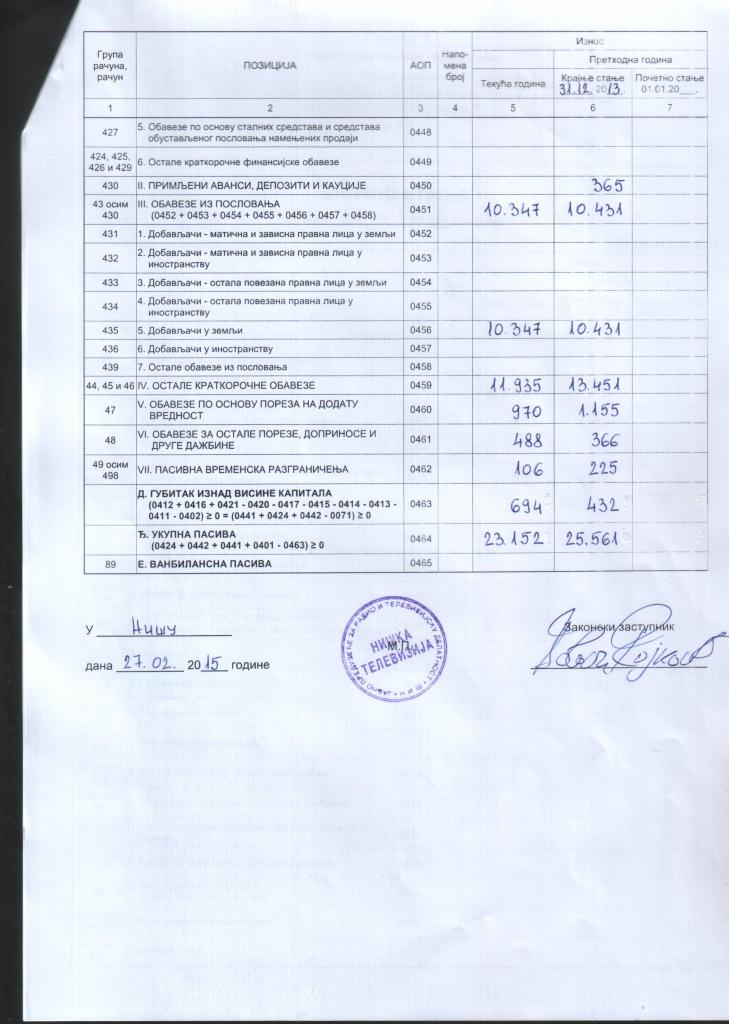 Група рачуна, рачун | ПОЗИЦИЈА | АОП | Напо-мена број | Износ
Текућа година | Претходна година
Крајње стање 31.12. 2013. | Почетно стање 01.01.20__.
1 | 2 | 3 | 4 | 5 | 6 | 7
427 | 5. Обавезе по основу сталних средстава и средстава обустављеног пословања намењених продаји | 0448
424, 425, 426 и 429 | 6. Остале краткорочне финансијске обавезе | 0449
430 | II. ПРИМЉЕНИ АВАНСИ, ДЕПОЗИТИ И КАУЦИЈЕ | 0450 | 365
43 осим 430 | III. ОБАВЕЗЕ ИЗ ПОСЛОВАЊА (0452 + 0453 + 0454 + 0455 + 0456 + 0457 + 0458) | 0451 | 10.347 | 10.431
431 | 1. Добављачи - матична и зависна правна лица у земљи | 0452
432 | 2. Добављачи - матична и зависна правна лица у иностранству | 0453
433 | 3. Добављачи - остала повезана правна лица у земљи | 0454
434 | 4. Добављачи - остала повезана правна лица у иностранству | 0455
435 | 5. Добављачи у земљи | 0456 | 10.347 | 10.431
436 | 6. Добављачи у иностранству | 0457
439 | 7. Остале обавезе из пословања | 0458
44, 45 и 46 | IV. ОСТАЛЕ КРАТКОРОЧНЕ ОБАВЕЗЕ | 0459 | 11.935 | 13.451
47 | V. ОБАВЕЗЕ ПО ОСНОВУ ПОРЕЗА НА ДОДАТУ ВРЕДНОСТ | 0460 | 970 | 1.155
48 | VI. ОБАВЕЗЕ ЗА ОСТАЛЕ ПОРЕЗЕ, ДОПРИНОСЕ И ДРУГЕ ДАЖБИНЕ | 0461 | 488 | 366
49 осим 498 | VII. ПАСИВНА ВРЕМЕНСКА РАЗГРАНИЧЕЊА | 0462 | 106 | 225
Д. ГУБИТАК ИЗНАД ВИСИНЕ КАПИТАЛА (0412 + 0416 + 0421 - 0420 - 0417 - 0415 - 0414 - 0413 - 0411 - 0402) ≥ 0 = (0441 + 0424 + 0442 - 0071) ≥ 0 | 0463 | 694 | 432
Ђ. УКУПНА ПАСИВА (0424 + 0442 + 0441 + 0401 - 0463) ≥ 0 | 0464 | 23.152 | 25.561
89 | Е. ВАНБИЛАНСНА ПАСИВА | 0465
У Нишу
Законски заступник
М.П.
ЈАВНО ПРЕДУЗЕЋЕ ЗА РАДИО И ТЕЛЕВИЗИЈСКУ ДЕЛАТНОСТ • НИШ
НИШКА
ТЕЛЕВИЗИЈА
дана 27.02. 2015 године